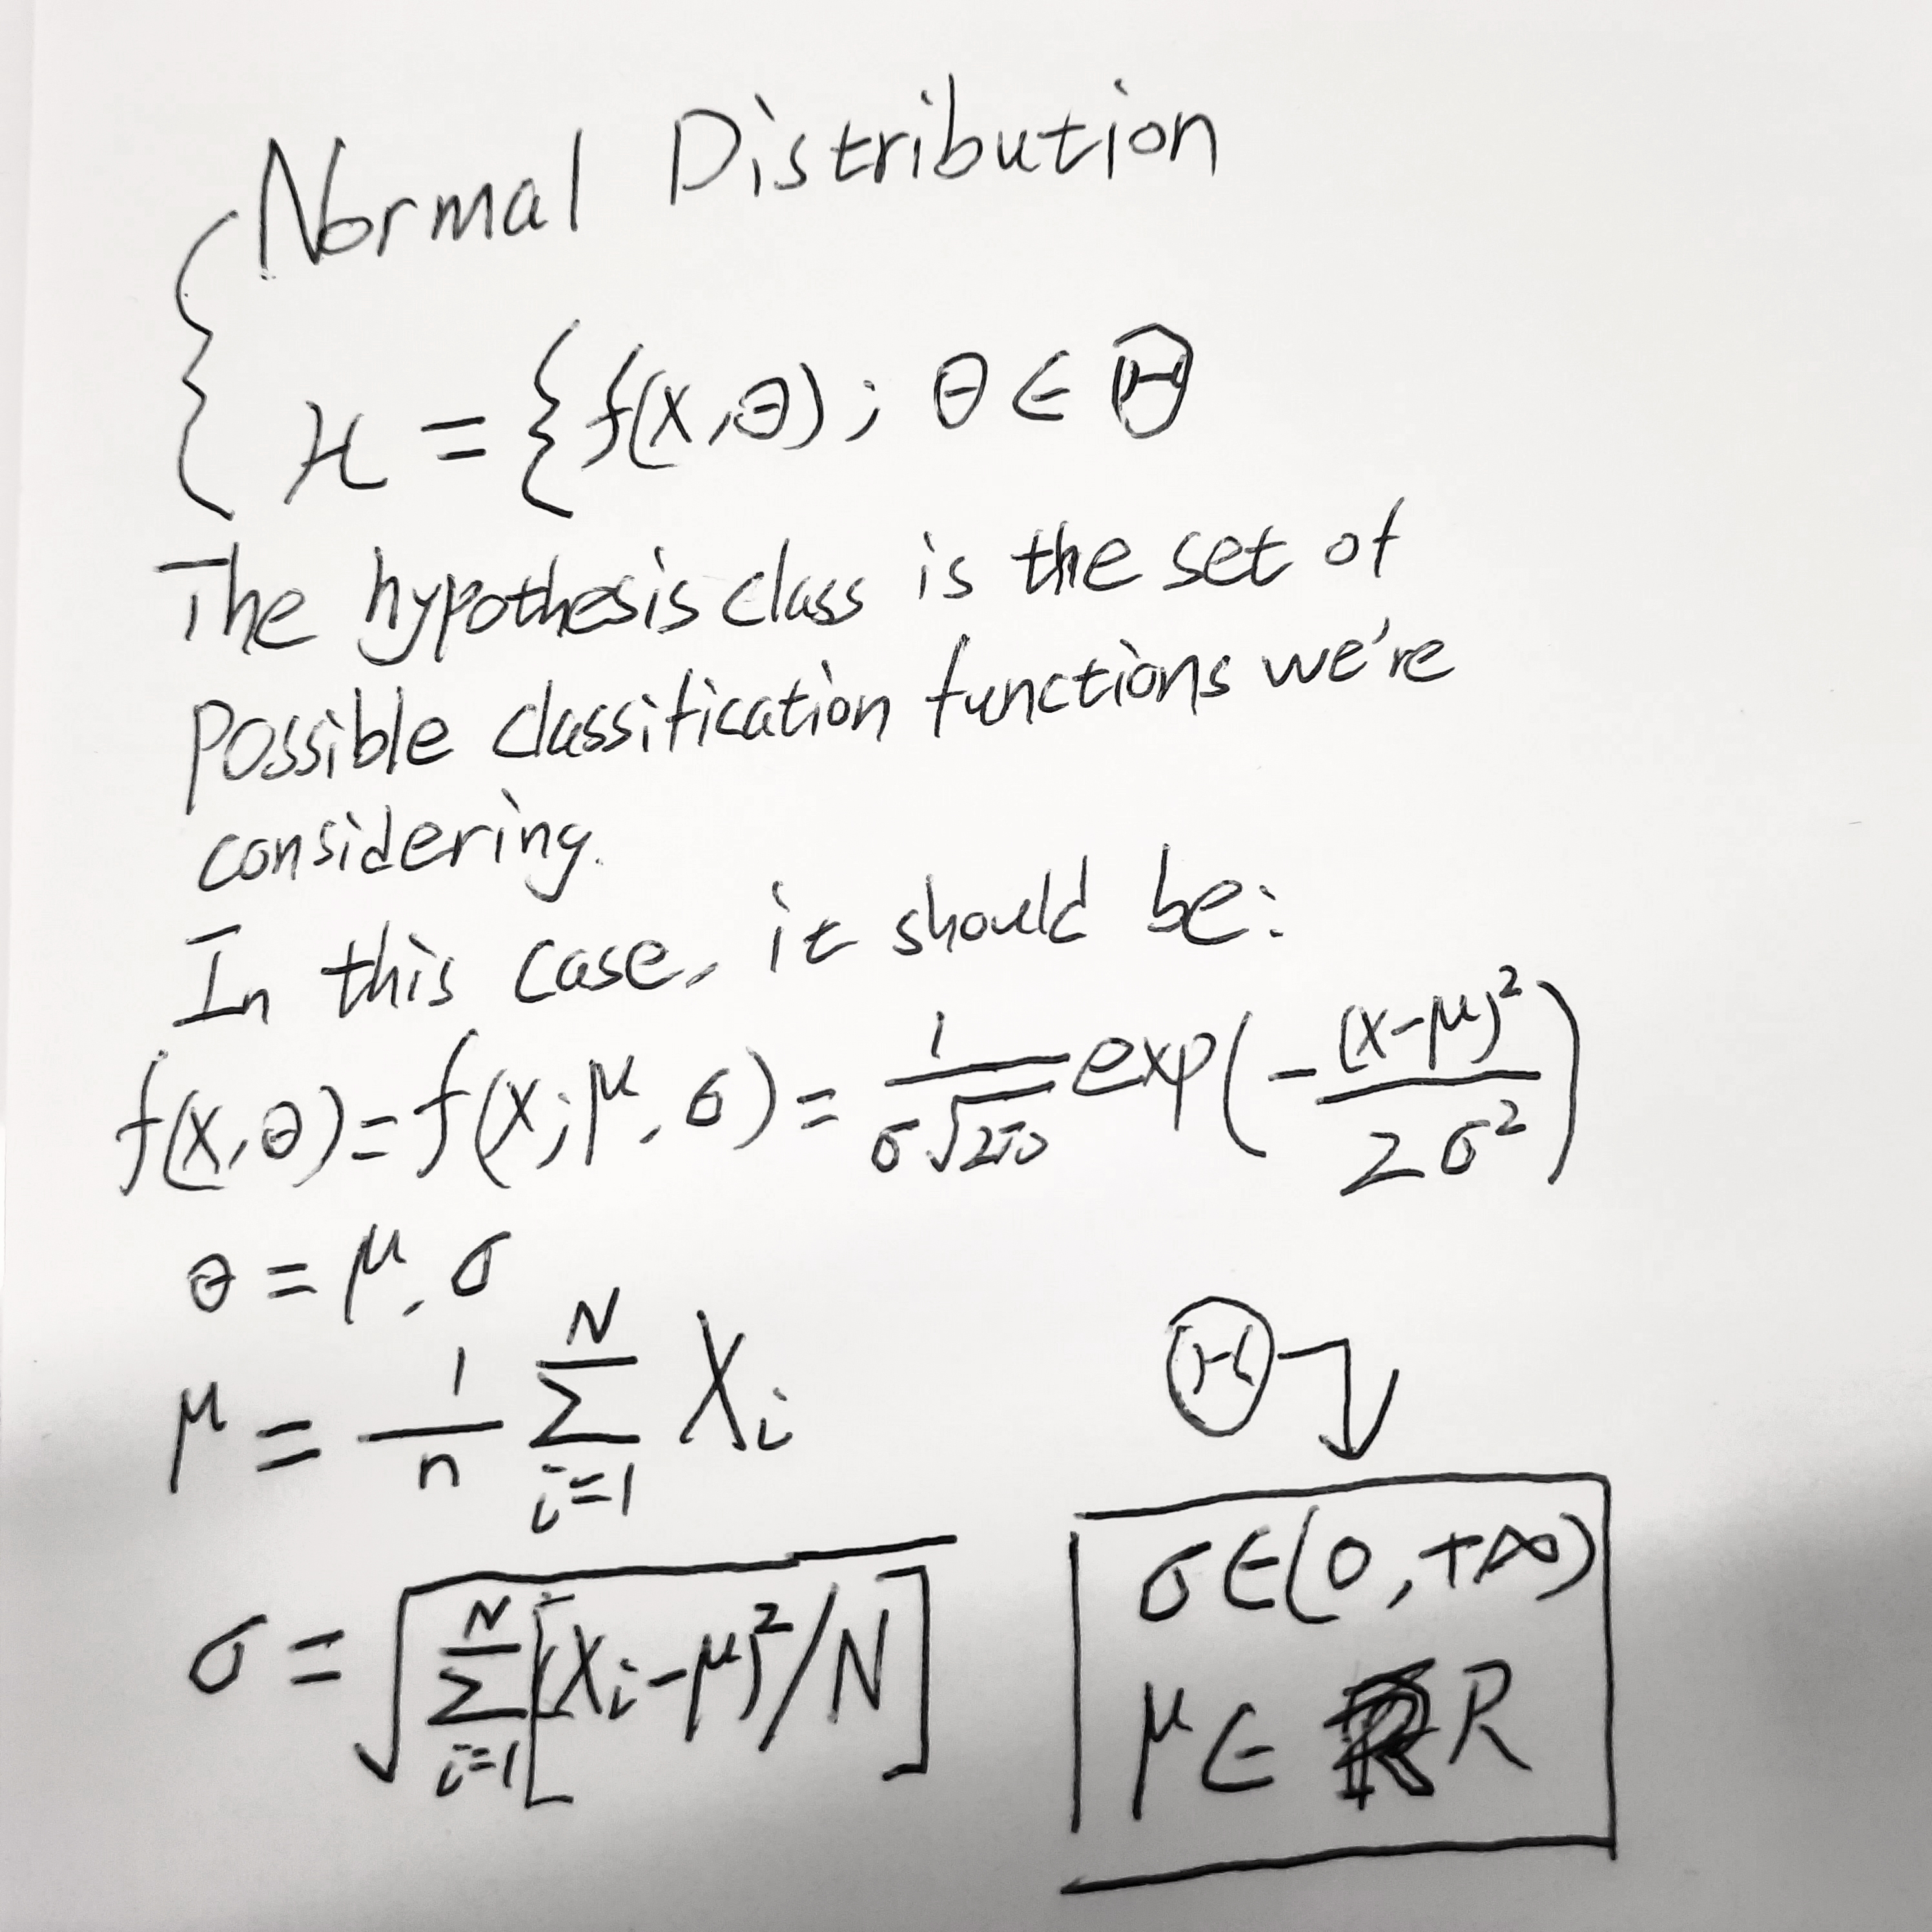 Normal Distribution
H = {f(x,θ); θ ∈ Θ
The hypothesis class is the set of
possible classification functions we're
considering.
In this case, it should be:
f(x,θ) = f(x;μ,σ) = 1/(σ√2π) exp(-(x-μ)²/2σ²)
θ = μ, σ
μ = 1/n Σ_{i=1}^{N} X_i
Θ
σ = √Σ_{i=1}^{N} [(X_i-μ)²/N]
σ∈(0,+∞)
μ∈ R